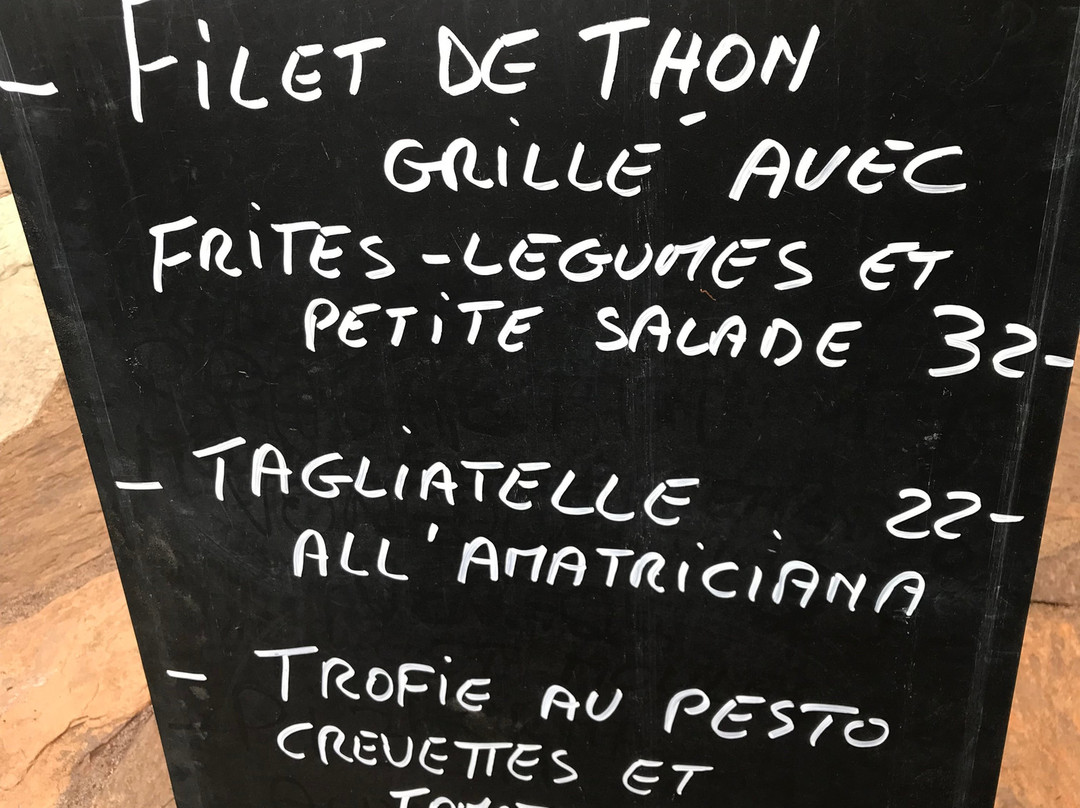 - FiLET DE THON
GRiLLÉ AVEC
FRiTES-LEGUMES ET
PETiTE SALADE 32-
- TAGLiATELLE 22-
ALL'AMATRiCiANA
- TROFiE AU PESTO
CREVETTES ET